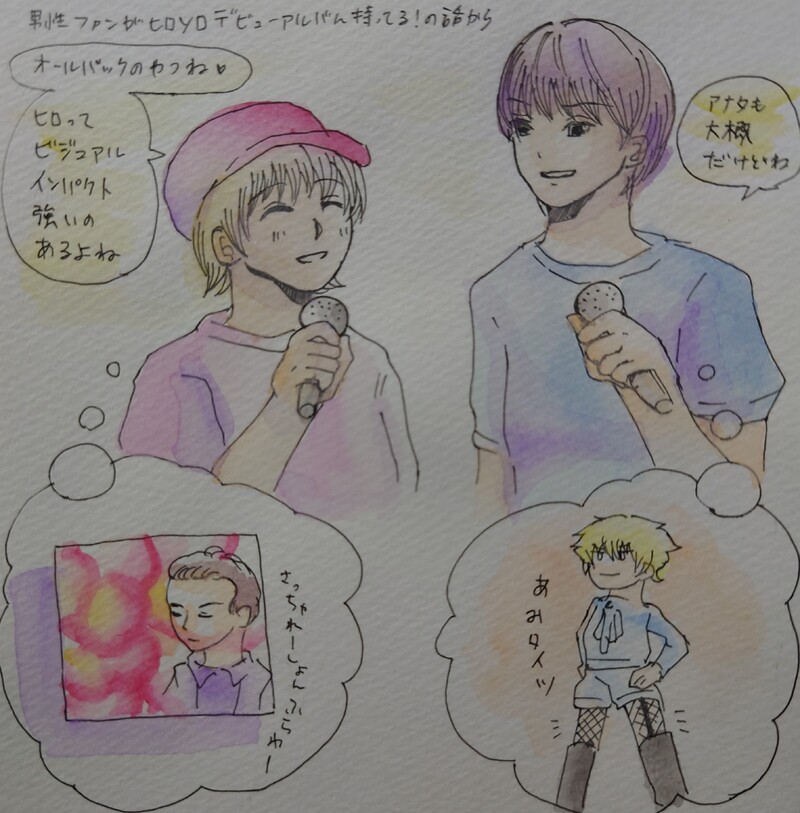 男性ファンがヒロソロデビューアルバム持ってる！の話から
オールバックのやつね
ヒロって
ビジュアル
インパクト
強いの
あるよね
アナタも
大概
だけどね
さっちゅれーしょんふらわー
あみタイツ